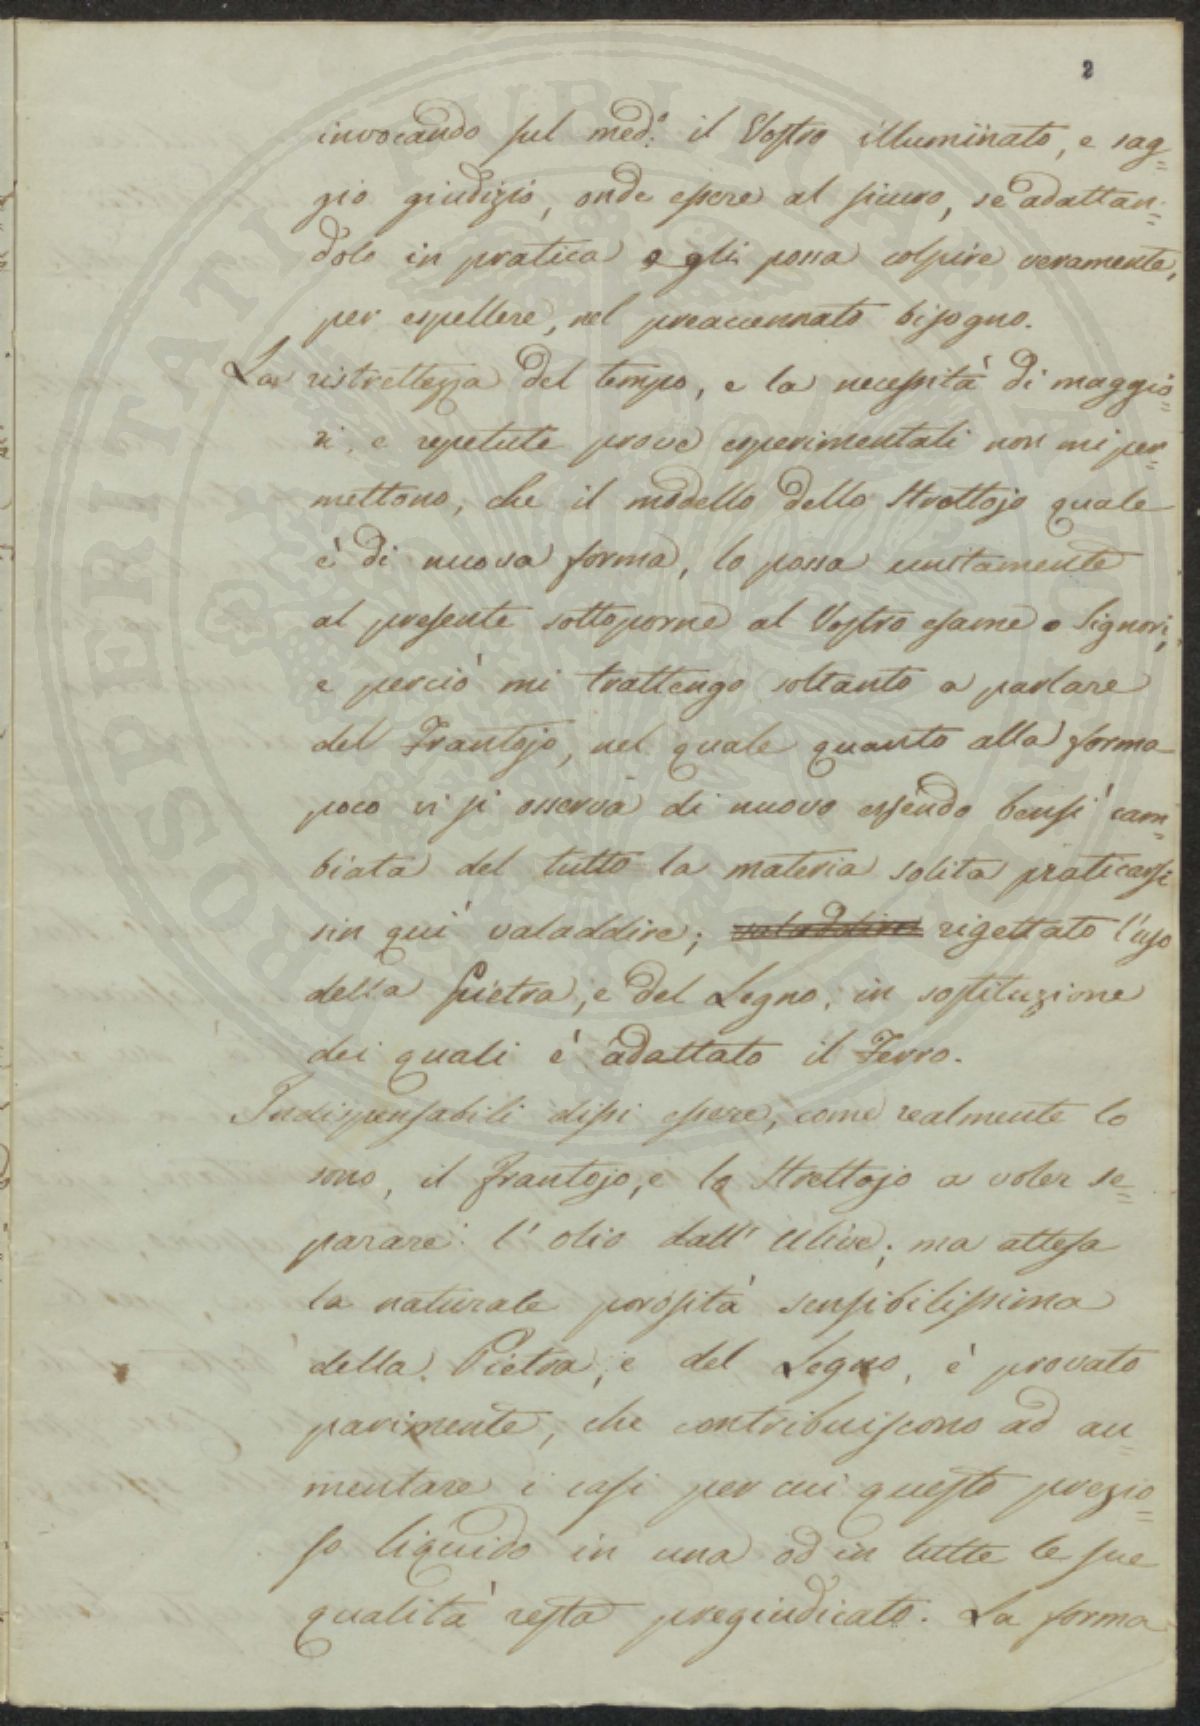 2
invocando sul med.º il Vostro illuminato, e sag=
gio giudizio, onde essere al sicuro, se adattan=
dolo in pratica egli possa colpire veramente,
per espellere, nel preaccennato bisogno.
La ristrettezza del tempo, e la necessità di maggio=
ri, e repetute prove esperimentali non mi per=
mettono, che il modello dello Strettojo quale
è di nuova forma, lo possa unitamente
al presente sottoporne al Vostro esame o Signori,
e perciò mi trattengo soltanto a parlare
del Frantojo, nel quale quanto alla forma
poco vi si osserva di nuovo essendo bensì cam=
biata del tutto la materia solita praticarsi
sin qui valaddire; valaddire rigettato l'uso
della Pietra, e del Legno, in sostituzione
dei quali è adattato il Ferro.
Indispensabili dissi essere, come realmente lo
sono, il Frantojo, e lo Strettojo a voler se=
parare l'olio dall'Ulive; ma attesa
la naturale porosità sensibilissima
della Pietra, e del Legno, è provato
parimente, che contribuiscono ad au=
mentare i casi per cui questo prezio=
so liquido in una od in tutte le sue
qualità resta pregiudicato. La forma
PROSPERITATI PUBLICAE AUGENDAE